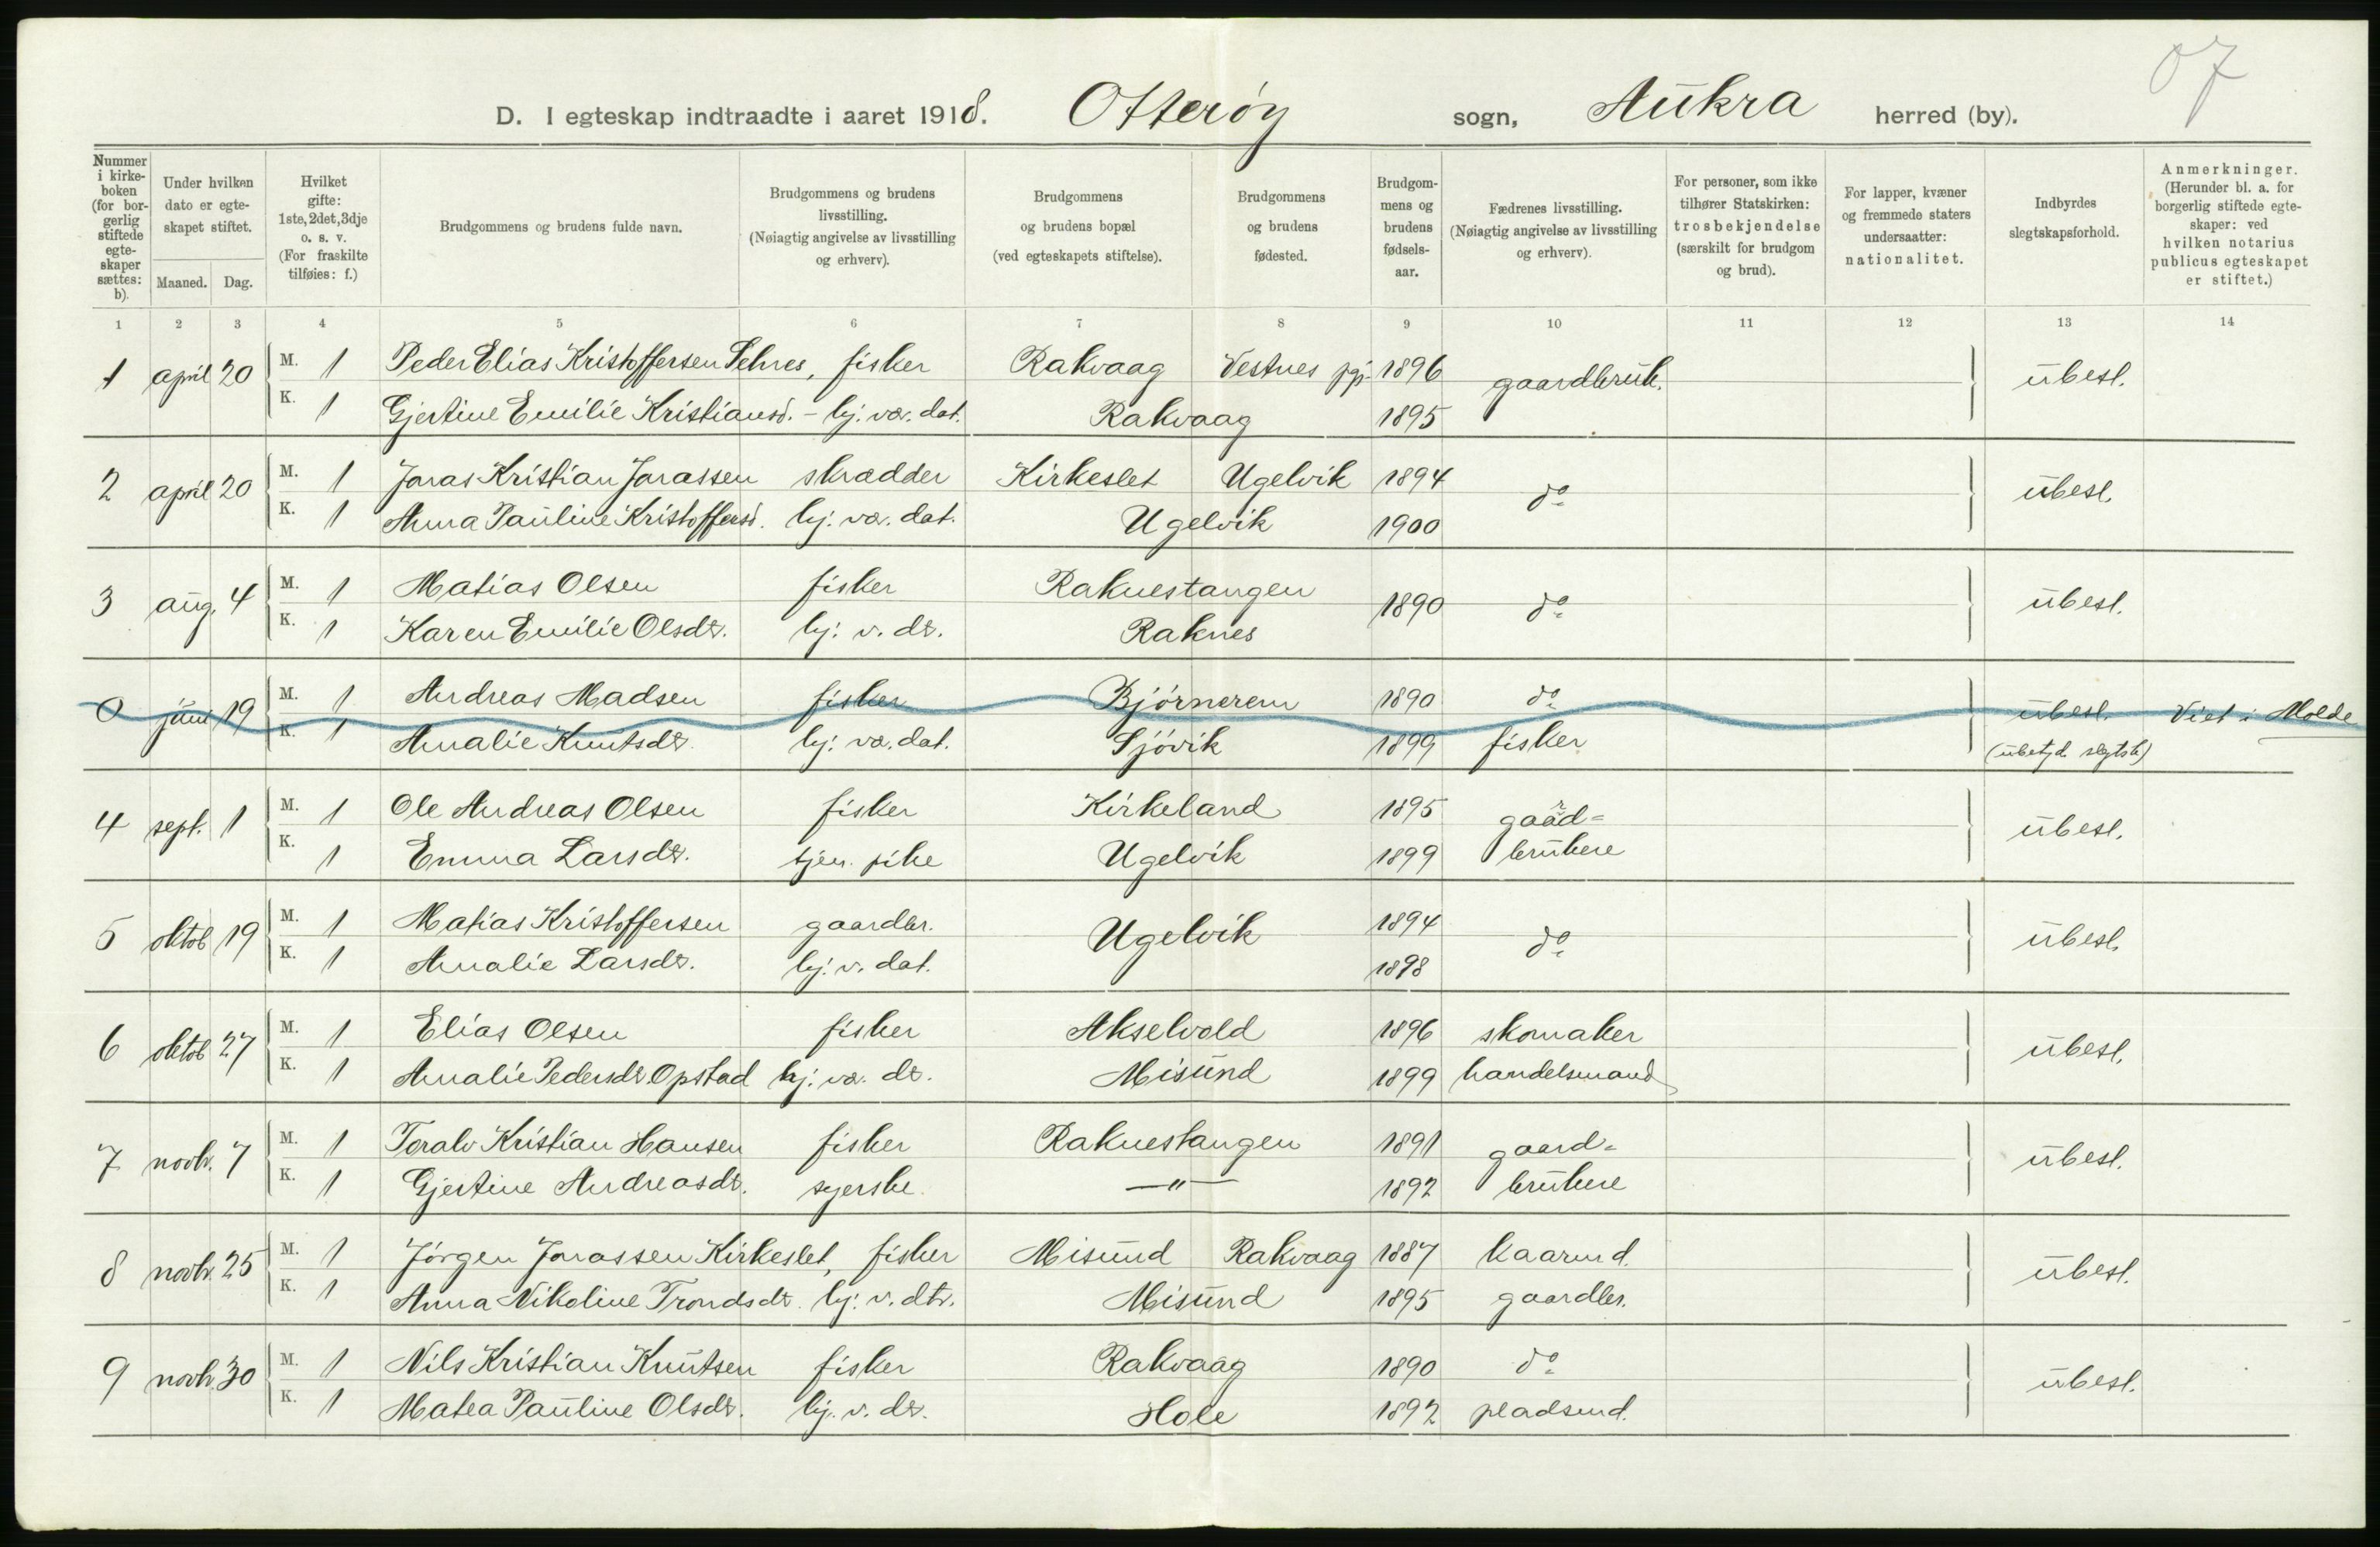 07
D. I egteskap indtraadte i aaret 1918. Otterøy sogn, Aukra herred (by).
Nummer i kirkeboken (for borgerlig stiftede egteskaper sættes: b).
Under hvilken dato er egteskapet stiftet.
Maaned. Dag.
Hvilket gifte: 1ste, 2det, 3dje o. s. v. (For fraskilte tilføies: f.)
Brudgommens og brudens fulde navn.
Brudgommens og brudens livsstilling. (Nøiagtig angivelse av livsstilling og erhverv).
Brudgommens og brudens bopæl (ved egteskapets stiftelse).
Brudgommens og brudens fødested.
Brudgommens og brudens fødselsaar.
Fædrenes livsstilling. (Nøiagtig angivelse av livsstilling og erhverv).
For personer, som ikke tilhører Statskirken: trosbekjendelse (særskilt for brudgom og brud).
For lapper, kvæner og fremmede staters undersaatter: nationalitet.
Indbyrdes slegtskapsforhold.
Anmerkninger. (Herunder bl. a. for borgerlig stiftede egteskaper: ved hvilken notarius publicus egteskapet er stiftet.)
1 2 3 4 5 6 7 8 9 10 11 12 13 14
1 april 20 M. 1 Peder Elias Kristoffersen , fisker Rakvaag Vestnes pgj. 1896 gaardbruk. übesl.
K. 1 Gjertine Emilie Kristiansd. - hj. vær. dat. Rakvaag 1895
2 april 20 M. 1 Jonas Kristian Jonassen skrædder Kirkeslet Ugelvik 1894 do übesl.
K. 1 Anna Pauline Kristoffersd. hj. vær. dat. Ugelvik 1900
3 aug. 4 M. 1 Matias Olsen fisker Raknestangen 1890 do übesl.
K. 1 Karen Emilie Olsdtr. hj. v. dt. Raknes
0 juni 19 M. 1 Andreas Madsen fisker Bjørnerem 1890 do übesl. Viet i Molde
K. 1 Amalie Knutsdtr. hj. vær. dat. Sjøvik 1899 fisker (übetyd. slegtsk)
4 sept. 1 M. 1 Ole Andreas Olsen fisker Kirkeland 1895 gaard= übesl.
K. 1 Emma Larsdtr. tjen. pike Ugelvik 1899 brukere
5 oktob 19 M. 1 Matias Kristoffersen gaardbr. Ugelvik 1894 do übesl.
K. 1 Amalie Larsdtr. hj. v. dat. 1898
6 oktob 27 M. 1 Elias Olsen fisker Akselvold 1896 skomaker übesl.
K. 1 Amalie Pedersdtr Opstad hj. vær. dt. Misund 1899 handelsmand
7 novbr. 7 M. 1 Toralv Kristian Hansen fisker Raknestangen 1891 gaard= übesl.
K. 1 Gjertine Andreasdt. syerske —"— 1892 brukere
8 novbr. 25 M. 1 Jørgen Jonassen Kirkeslet, fisker Misund Rakvaag 1887 kaarmd. übesl.
K. 1 Anna Nikoline Trondsdt. hj. v. dtr. Misund 1895 gaardbr.
9 novbr. 30 M. 1 Nils Kristian Knutsen fisker Rakvaag 1890 do übesl.
K. 1 Matea Pauline Olsdtr. hj. v. dt. Hole 1892 pladsmd.